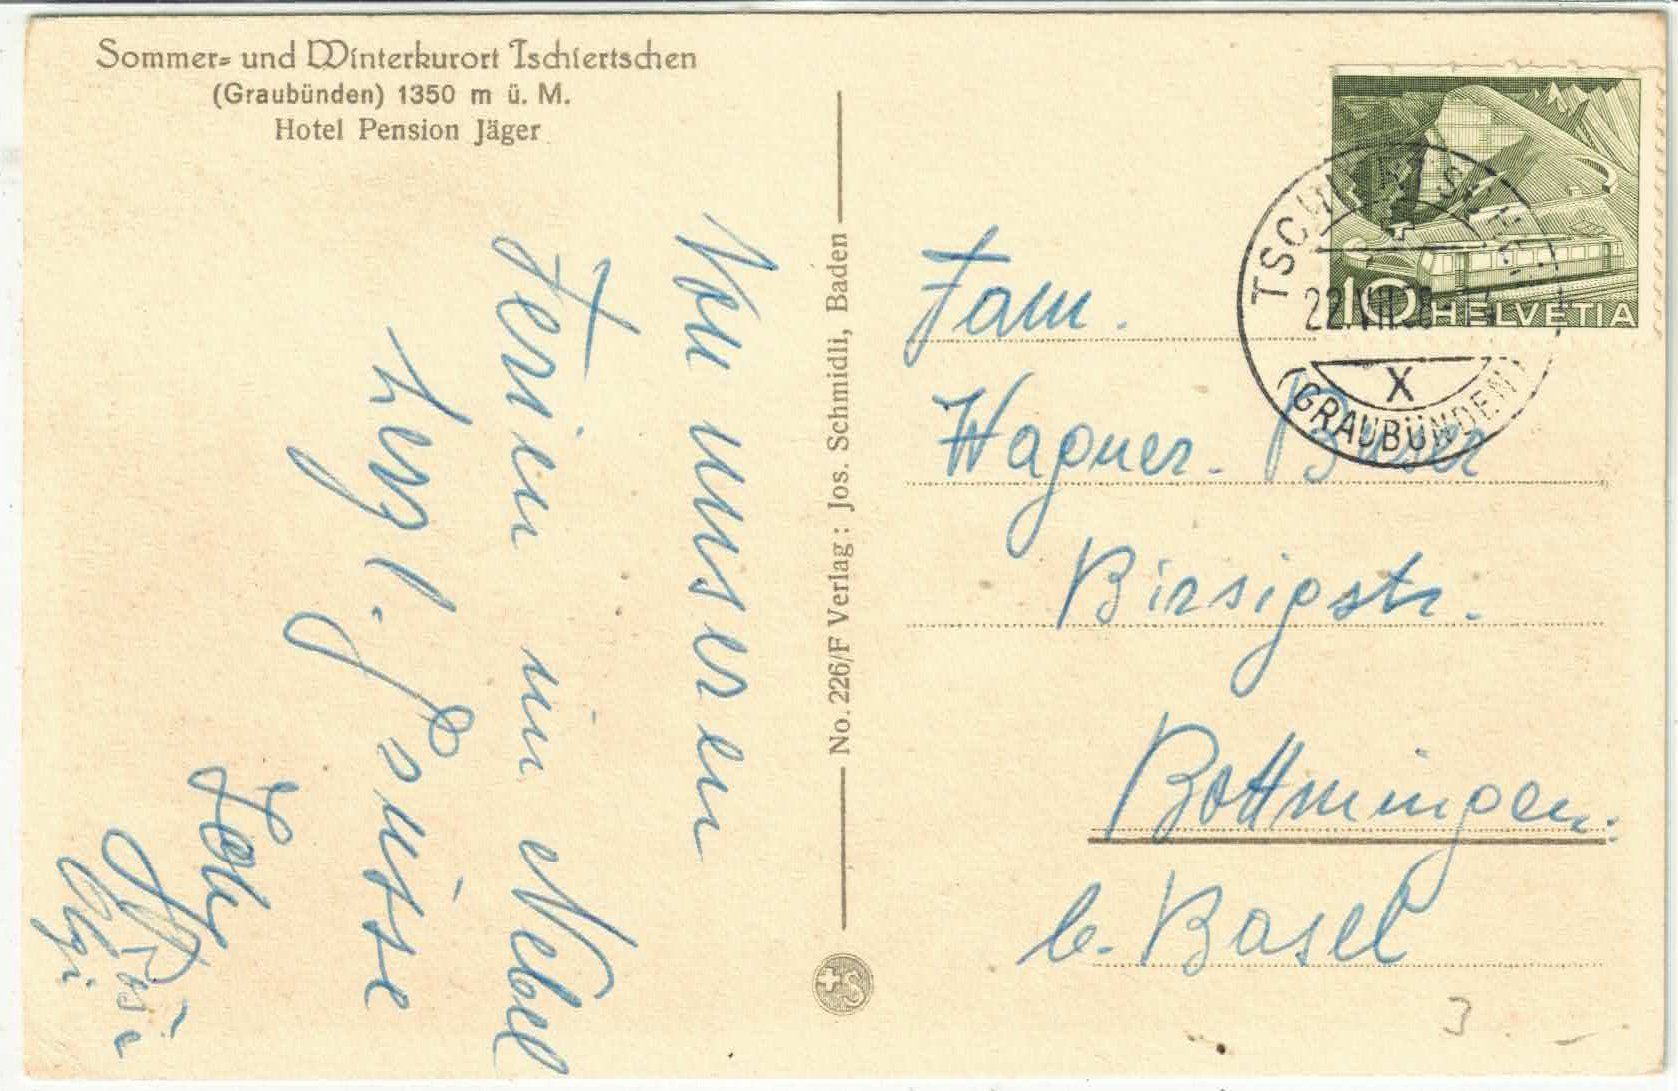 Sommer- und Winterkurort Tschiertschen
(Graubünden) 1350 m ü. M.
Hotel Pension Jäger
Von unseren
Ferien im Nebel
herzl. Grüsse
No. 226/F Verlag: Jos. Schmidli, Baden
10 HELVETIA
TSCHIERTSCHEN
22.VIII.
X
(GRAUBÜNDEN)
Fam.
Wagner-Buser
Birsigstr.
Bottmingen.
b. Basel
3